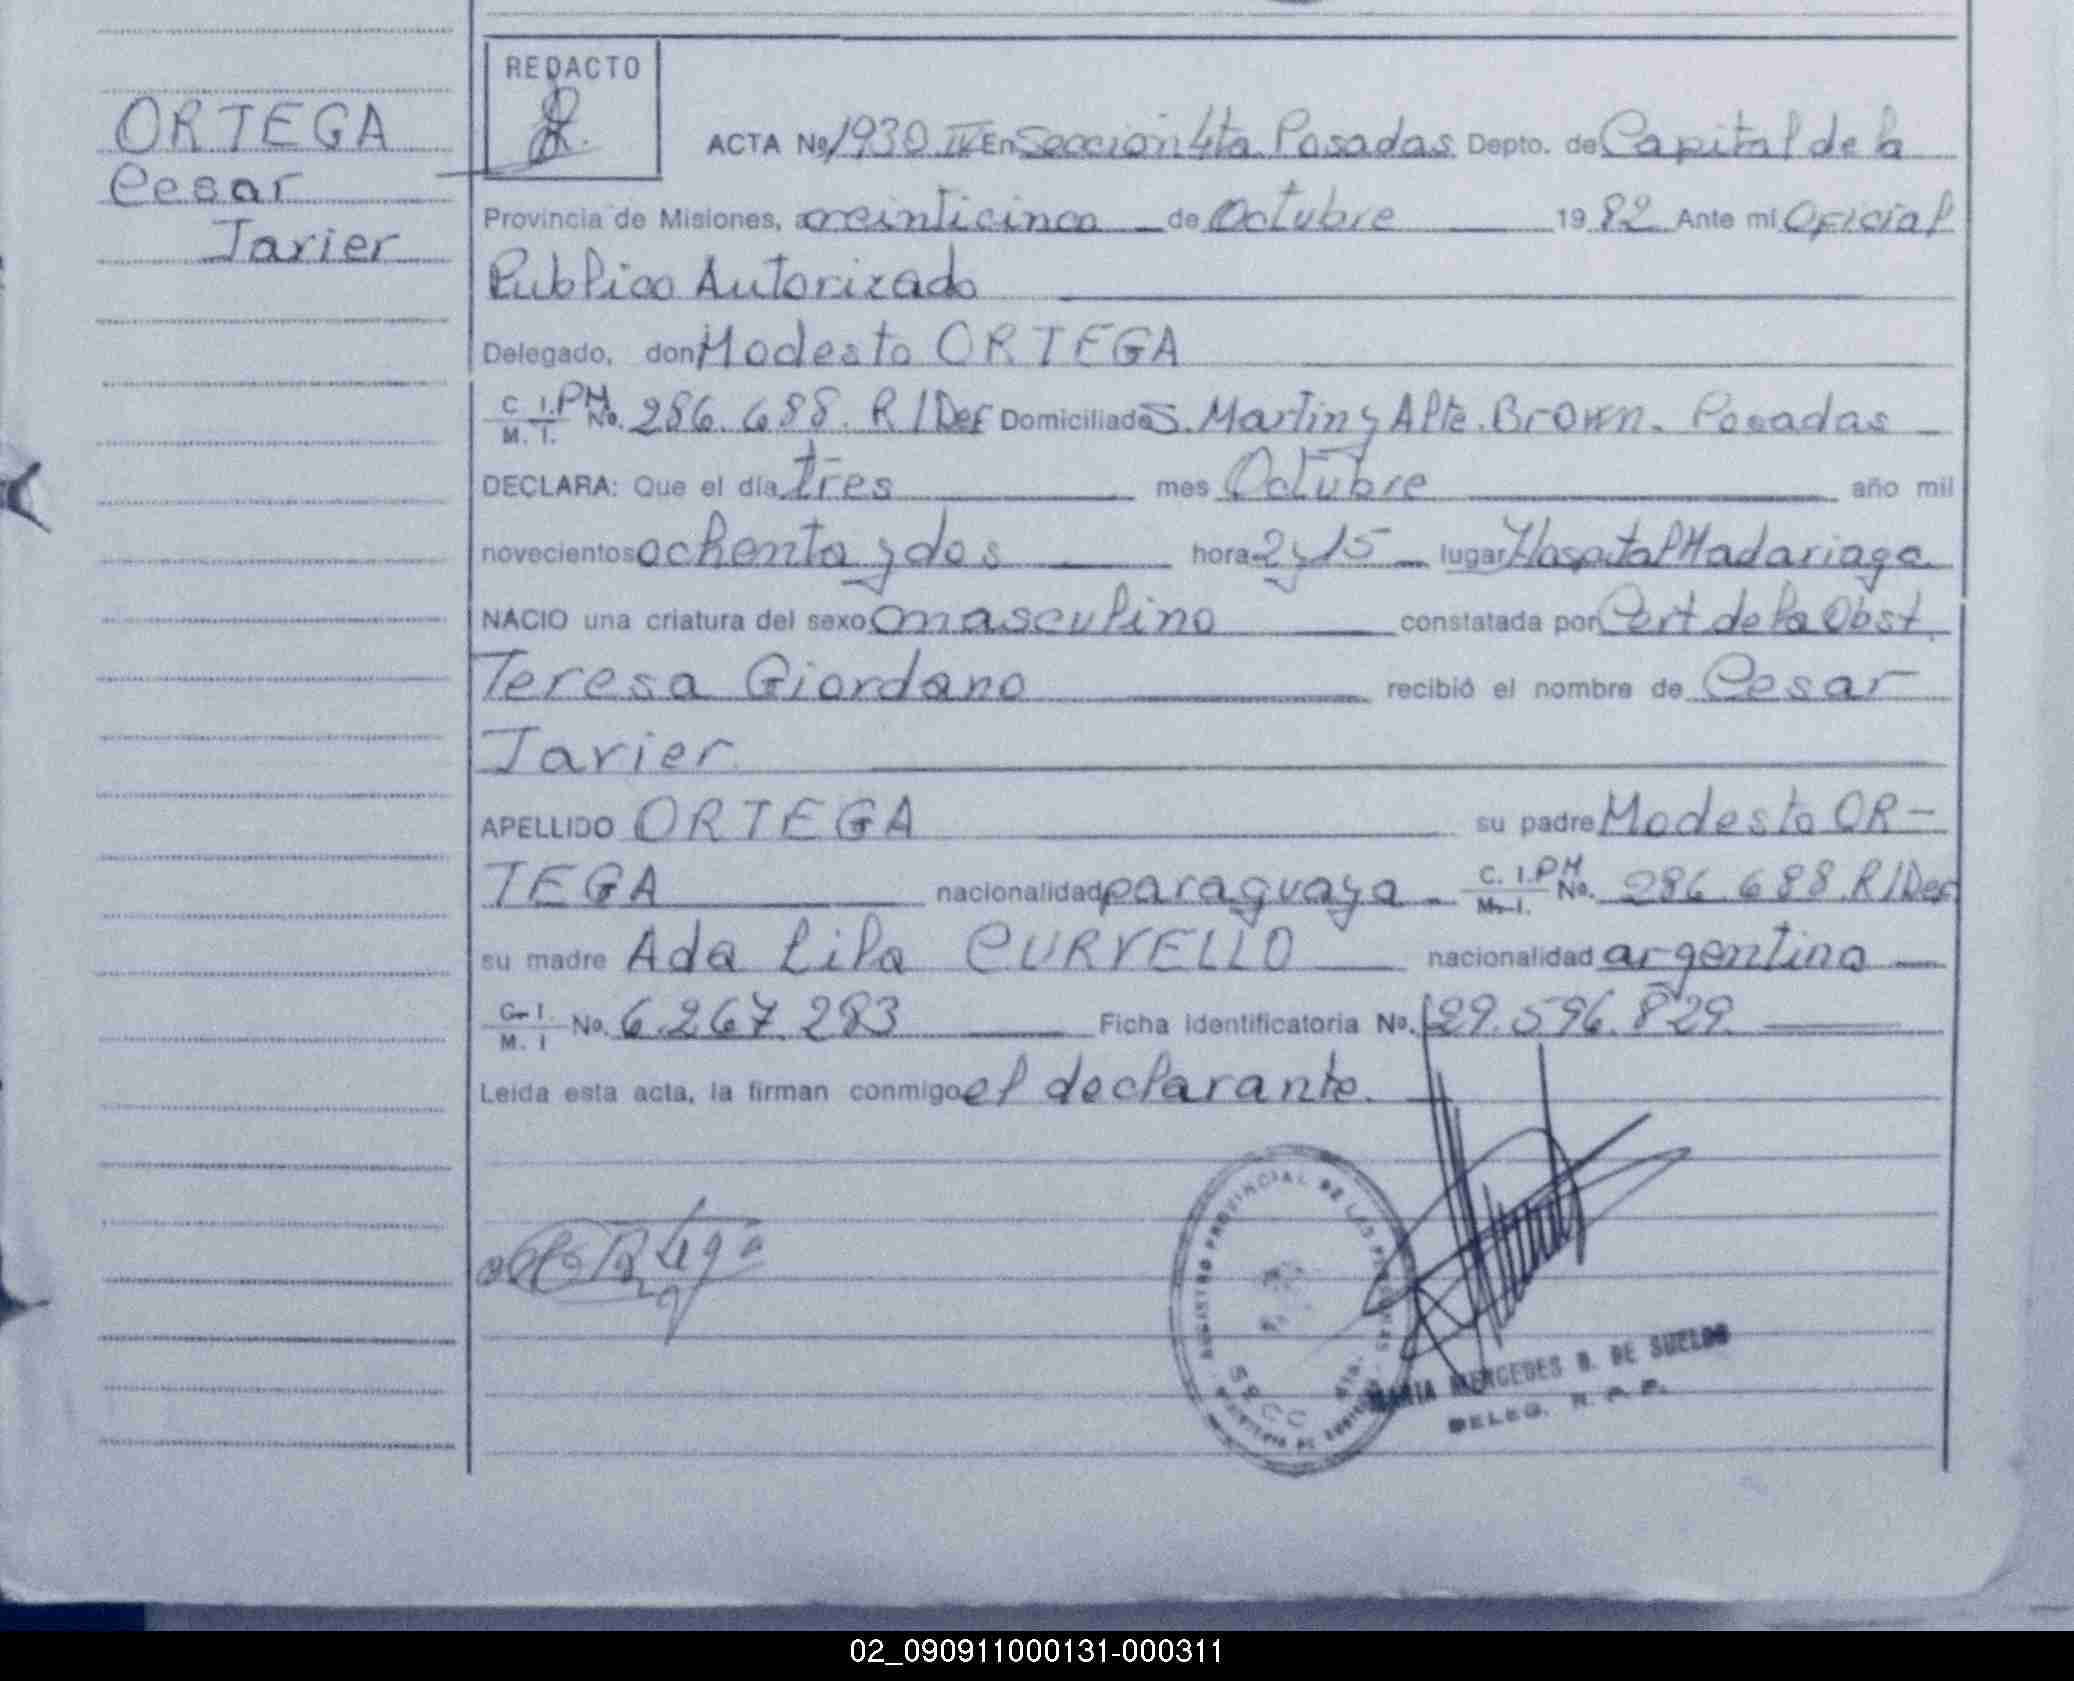 ORTEGA
Cesar
Javier
REDACTO
ACTA No 1930 IV En Sección 4ta Posadas Depto. de Capital de la
Provincia de Misiones, a veinticinco de Octubre 1982 Ante mi Oficial
Publico Autorizado
Delegado, don Modesto ORTEGA
C. I. PM M. I. No. 286.688. R/Def Domiciliado S. Martin y Alte. Brown. Posadas
DECLARA: Que el día tres mes Octubre año mil
novecientos ochenta y dos hora 2 y 15 lugar Hospital Madariaga
NACIO una criatura del sexo masculino constatada por Cert de la Obst.
Teresa Giordano recibió el nombre de Cesar
Javier
APELLIDO ORTEGA su padre Modesto OR-
TEGA nacionalidad paraguaya C. I. PM M. I. No. 286.688. R/Def
su madre Ada Lila CURVELLO nacionalidad argentina
C. I. M. I No. 6.267.283 Ficha identificatoria No. 29.596.829.
Leida esta acta, la firman conmigo el declarante.
REGISTRO PROVINCIAL DE LAS PERSONAS
SECC 4ta.
MARIA MERCEDES B. DE SUELDO
DELEG. R. P. P.
02_090911000131-000311